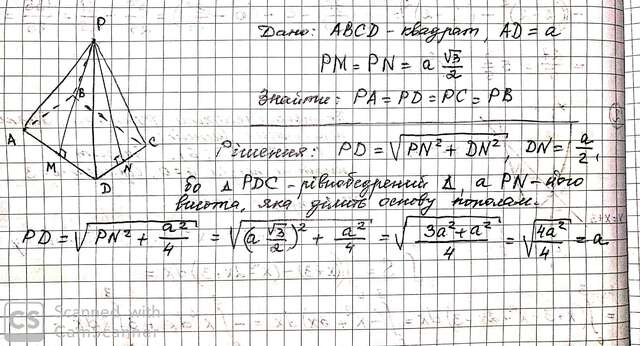 P
B
A
C
M
N
D
Дано: ABCD - квадрат, AD = a
PM = PN = a √3/2
Знайти: PA = PD = PC = PB
Рішення: PD = √(PN² + DN²), DN = a/2,
бо Δ PDC - рівнобедрений Δ, а PN - його
висота, яка ділить основу пополам.
PD = √(PN² + a²/4) = √((a √3/2)² + a²/4) = √((3a² + a²)/4) = √(4a²/4) = a
CS Scanned with
CamScanner